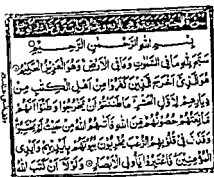 بسم الله الرحمن الرحيم
سبح لله ما في السموت وما في الارض وهو العزيز الحكيم
هو الذي اخرج الذين كفروا من اهل الكتب من
ديارهم لاول الحشر ما ظننتم ان يخرجوا وظنوا انهم
مانعتهم حصونهم من الله فاتهم الله من حيث لم يحتسبوا
وقذف في قلوبهم الرعب يخربون بيوتهم بايديهم وايدي
المؤمنين فاعتبروا ياولي الابصار ولولا ان كتب الله